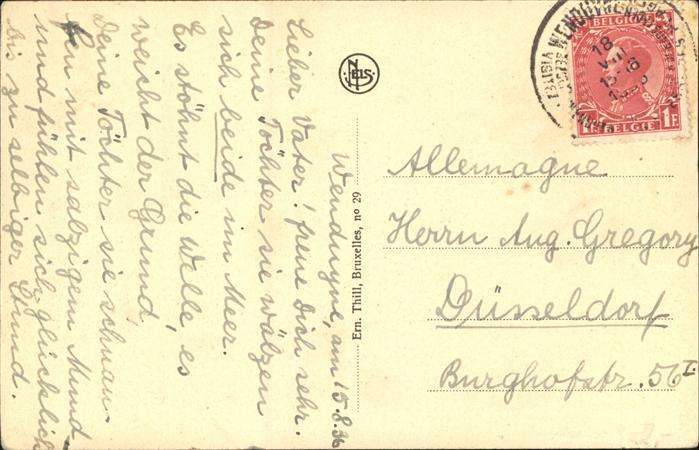 Wenduyne, am 15.8.36
Lieber Vater! freue Dich sehr.
Deine Töchter sie wälzen
sich beide im Meer.
Es stöhnt die Welle, es
weicht der Grund,
Deine Töchter sie schnau-
fen mit salzigem Mund
und fühlen sich glücklich
bis zu selbiger Stund.
NELS
Ern. Thill, Bruxelles, nº 29
WENDUYNE
18
VIII
BELGIQUE
1F. BELGIE 1F.
Allemagne
Herrn Aug. Gregory
Düsseldorf
Burghofstr. 56 I.
2,-